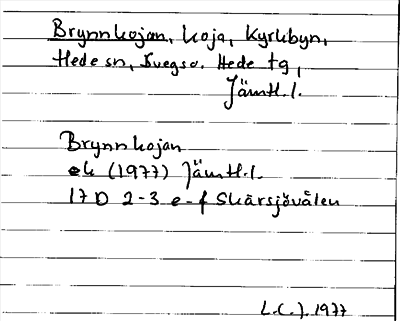 Brynnkojan, koja, Kyrkbyn,
Hede sn, Svegs o. Hede tg,
Jämtl.l.
Brynnkojan
ek (1977) Jämtl.l.
17 D 2-3 e-f Skärsjövålen
L.C.J. 1977